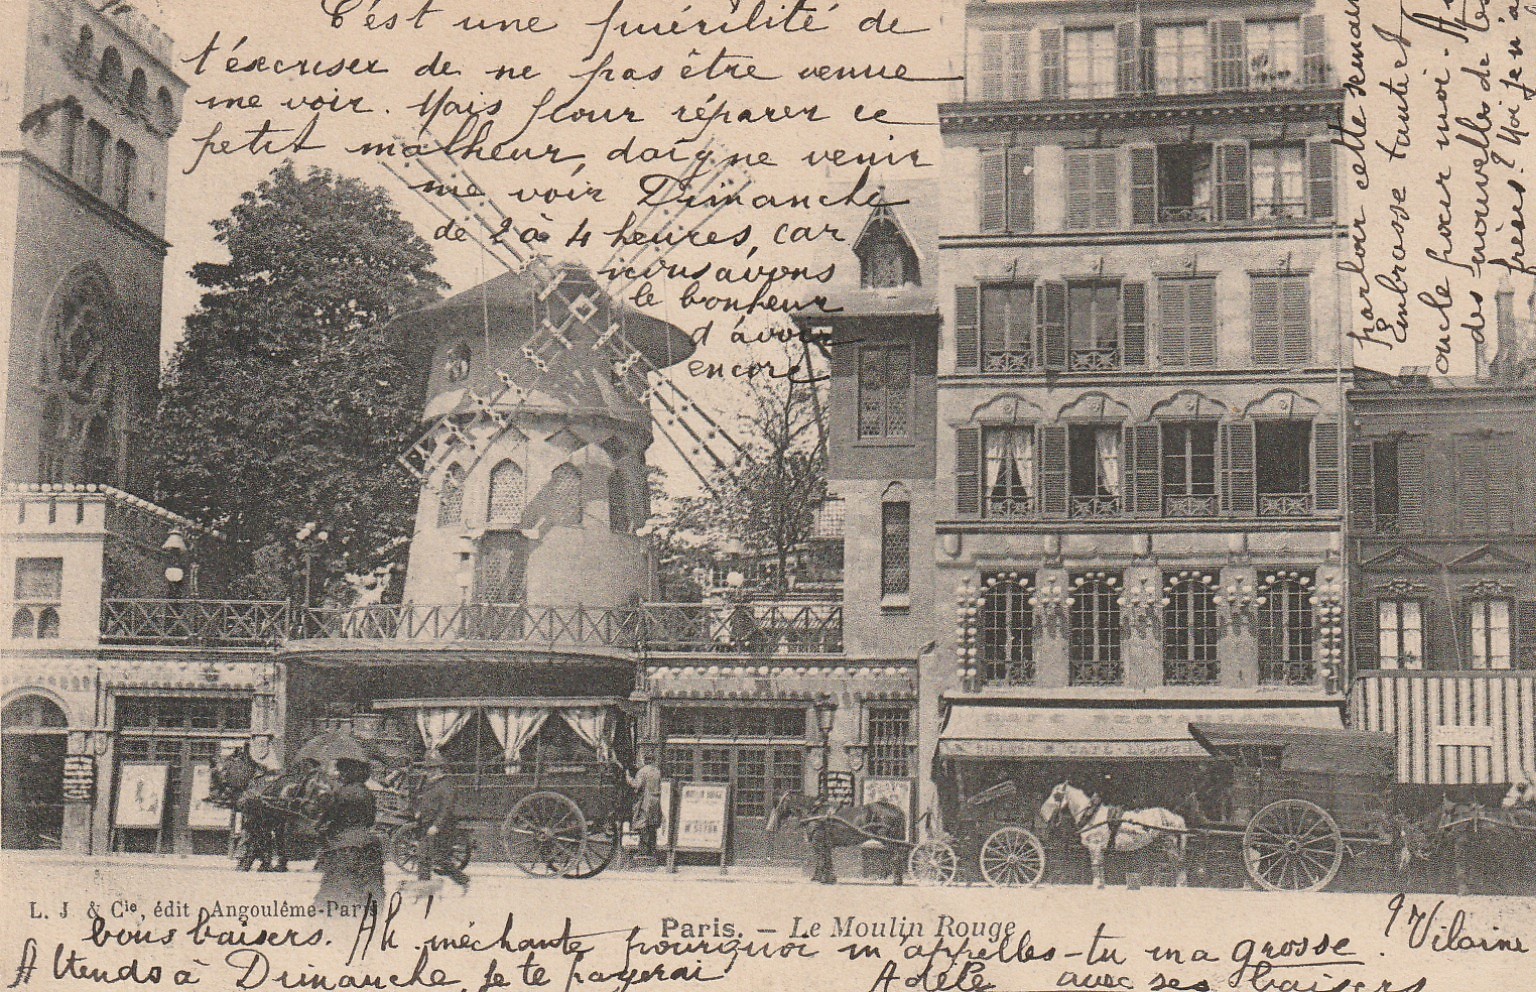 C'est une puérilité de
t'éxcuser de ne pas être venue
me voir. Mais pour réparer ce
petit malheur, daigne venir
me voir Dimanche
de 2 à 4 heures, car
nous avons
le bonheur
d'avoir
encore
parloir cette semaine
Embrasse tante et
oncle pour moi.
des nouvelles de tes
frères? Moi je n'a
CAFE RESTAURANT
L. J & Cie, édit Angoulême-Paris
Paris. — Le Moulin Rouge
bons baisers. Ah! méchante pourquoi m'appelles-tu ma grosse. ? Vilaine
Attends à Dimanche, je te payerai
Adèle avec ses baisers